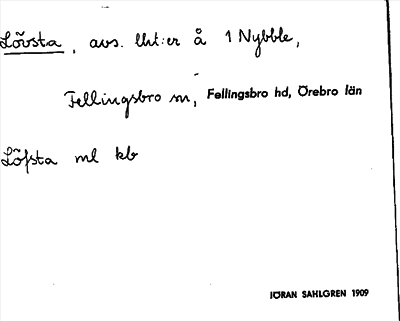 Lövsta, avs. lht:er å 1 Nybble,
Fellingsbro sn, Fellingsbro hd, Örebro län
Löfsta ml kb
JÖRAN SAHLGREN 1909